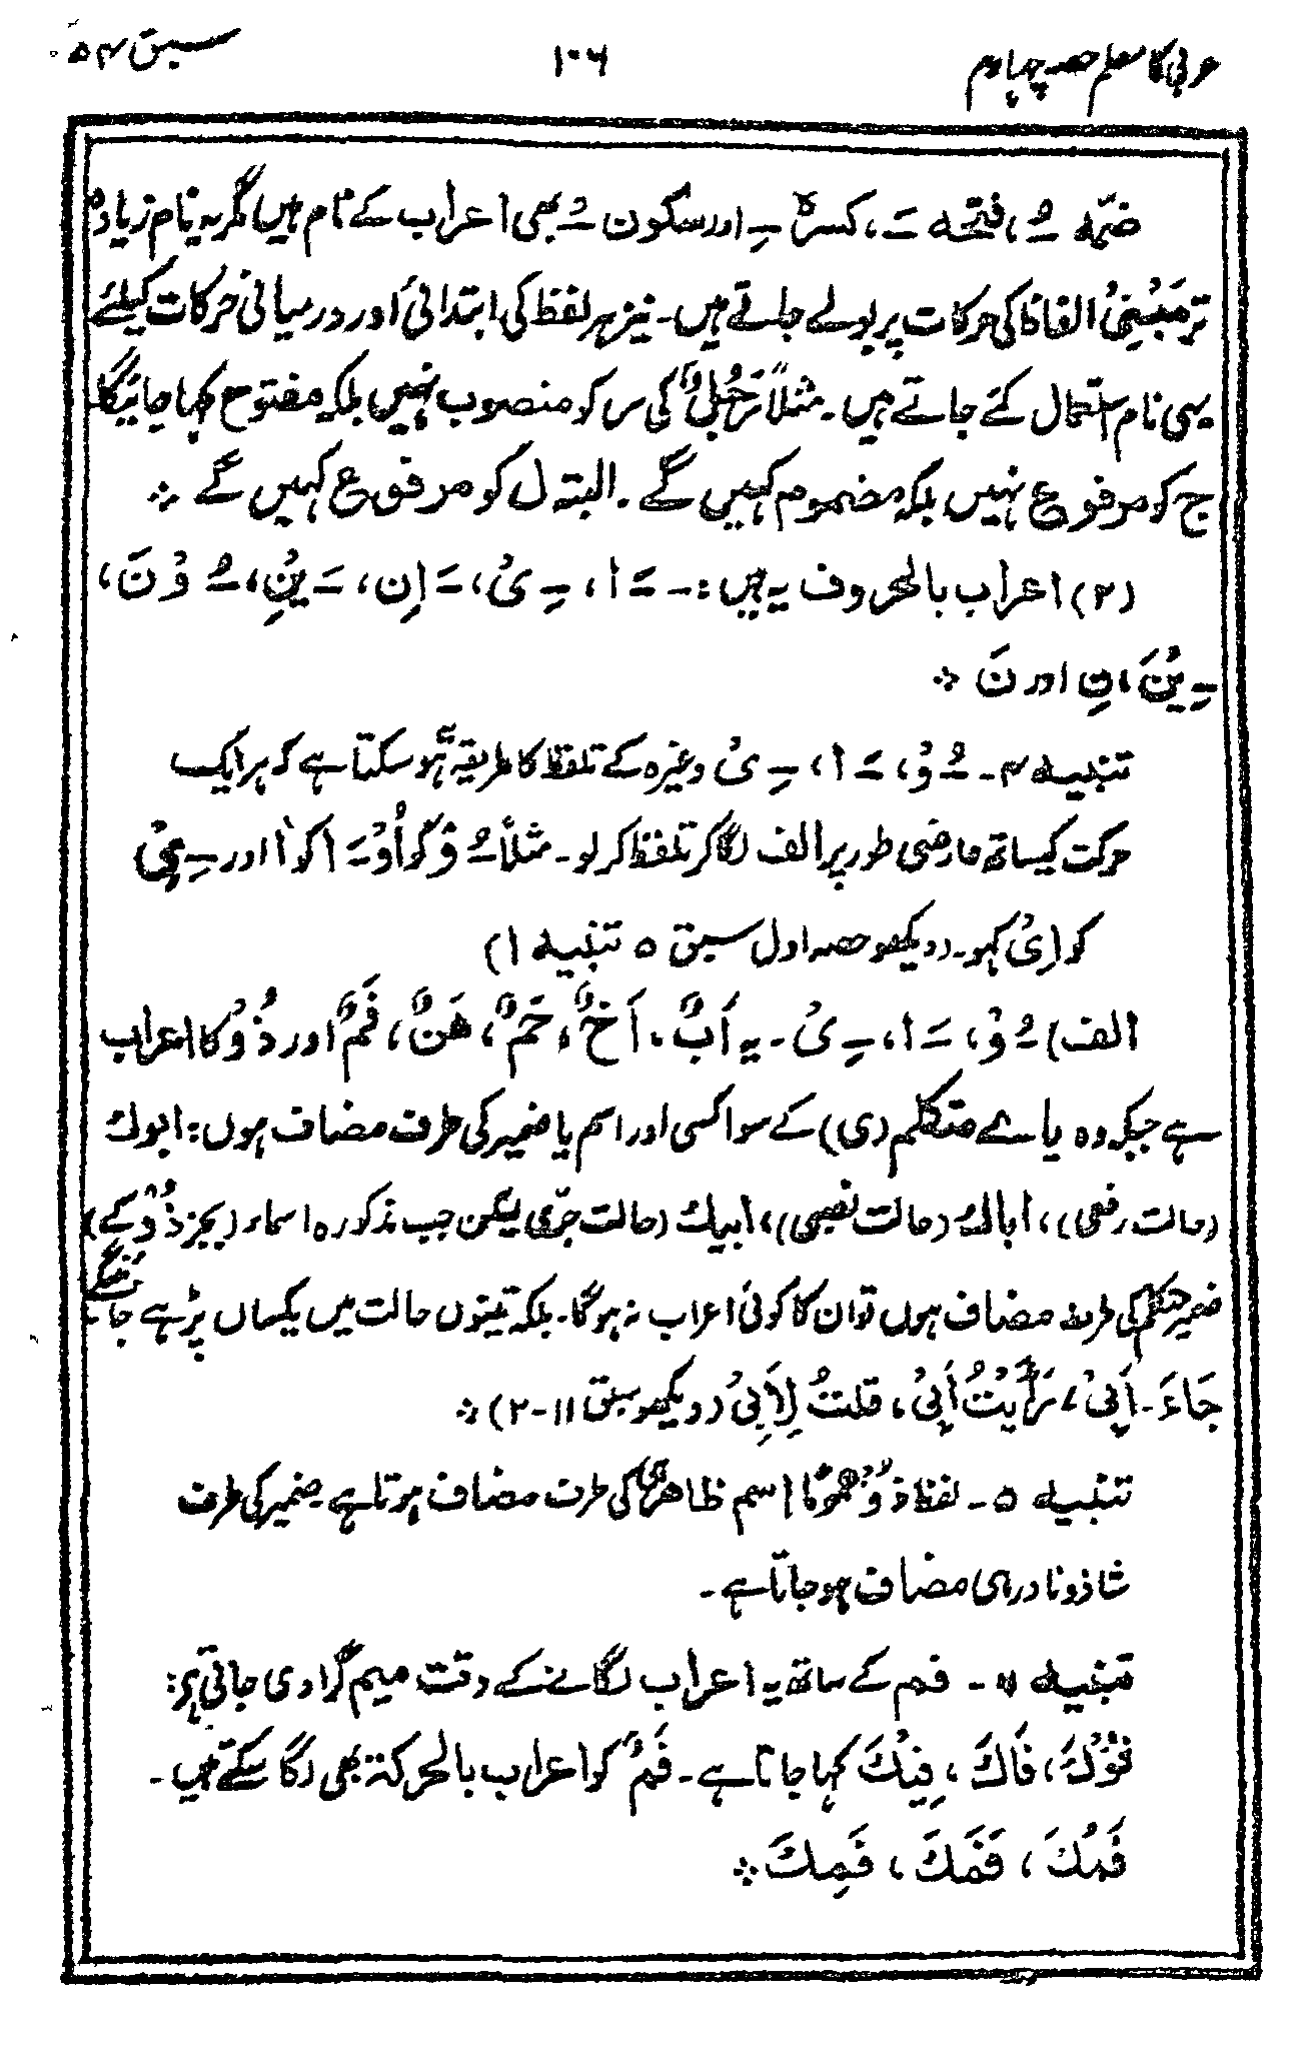 عربی کا معلم حصہ چہارم ۱۰۶ سبق ۵۴
ضمّہ ـُ ، فتحہ ـَ ، کسرہ ـِ اور سکون ـْ بھی اعراب کے نام ہیں مگر یہ نام زیادہ
تر مَبْنِیْ الفاظ کی حرکات پر بولے جاتے ہیں۔ نیز ہر لفظ کی ابتدائی اور درمیانی حرکات کیلئے
یہی نام استعمال کئے جاتے ہیں۔ مثلاً رَجُلٌ کی ر کو منصوب نہیں بلکہ مفتوح کہا جائیگا
ج کو مرفوع نہیں بلکہ مضموم کہیں گے۔ البتہ ل کو مرفوع کہیں گے ÷
(۲) اعراب بالحروف یہ ہیں :۔ ـَ ا ، ـِ یْ ، ـَ انِ ، ـَ یْنِ ، ـُ وْنَ ،
ـِ یْنَ ، نِ اور نَ ÷
تنبیہ ۴۔ ـُ وْ ، ـَ ا ، ـِ یْ وغیرہ کے تلفظ کا طریقہ یہ ہوسکتا ہے کہ ہر ایک
حرکت کیساتھ عارضی طور پر الف لگا کر تلفظ کرلو۔ مثلاً ـُ وْ کو اُوْ ـَ ا کو اٰ اور ـِ یْ
کو اِیْ کہو۔ (دیکھو حصہ اول سبق ۵ تنبیہ ۱)
الف) ـُ وْ ، ـَ ا ، ـِ یْ ۔ یہ اَبٌ ، اَخٌ ، حَمٌ ، هَنٌ ، فَمٌ اور ذُوْ کا اعراب
ہے جبکہ وہ یائے متکلم (ی) کے سوا کسی اور اسم یا ضمیر کی طرف مضاف ہوں: ابوك
(حالت رفعی) ، اباك (حالت نصبی) ، ابيك (حالت جرّی لیکن جب مذکورہ اسماء (بجز ذُوْ کے)
ضمیر متکلم کی طرف مضاف ہوں تو ان کا کوئی اعراب نہ ہوگا۔ بلکہ تینوں حالت میں یکساں پڑھے جائینگے
جَاءَ ۔ اَبِیْ ، رَأَیْتُ اَبِیْ ، قلتُ لِاَبِیْ (دیکھو سبق ۱۱-۲) ÷
تنبیہ ۵۔ لفظ ذُوْ عموماً اسم ظاہر ہی کی طرف مضاف ہوتا ہے ۔ ضمیر کی طرف
شاذ و نادر ہی مضاف ہوجاتا ہے ۔
تنبیہ ۶۔ فم کے ساتھ یہ اعراب لگانے کے وقت میم گرا دی جاتی ہر:
فُوْكَ ، فَاكَ ، فِيْكَ کہا جاتا ہے ۔ فَمٌ کو اعراب بالحرکة بھی لگا سکتے ہیں ۔
فَمُكَ ، فَمَكَ ، فَمِكَ ÷